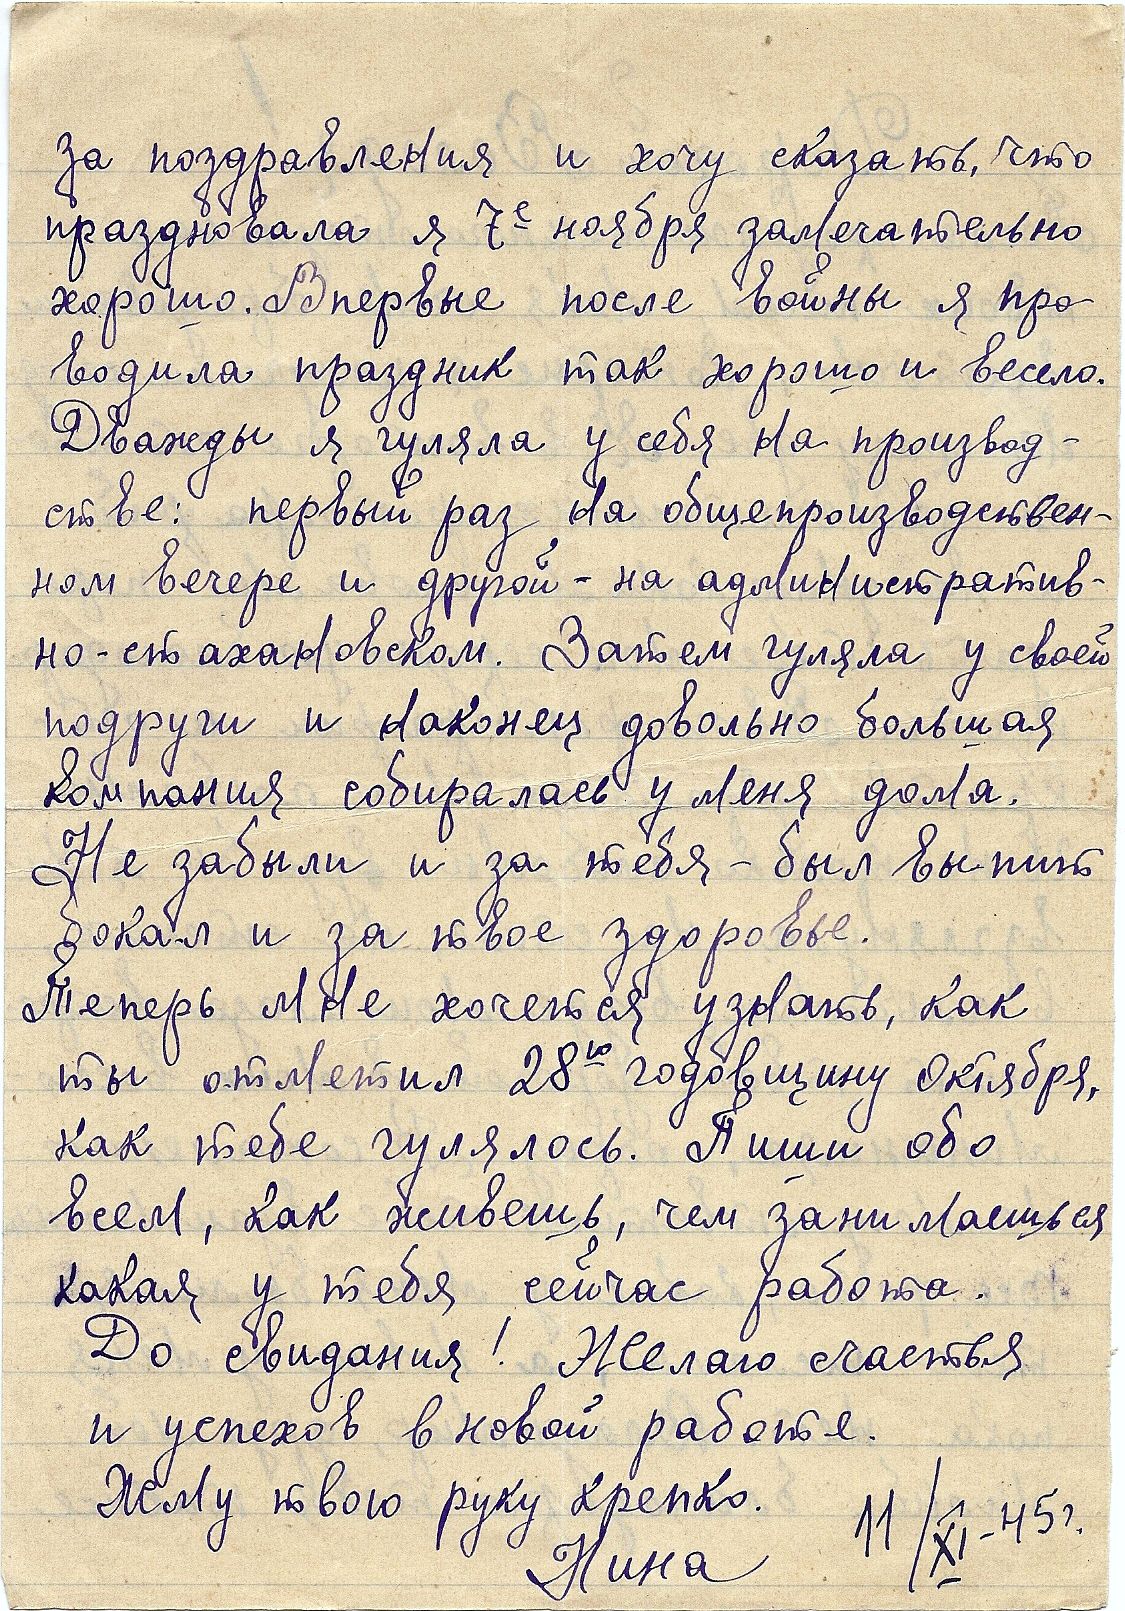 за поздравления и хочу сказать, что
праздновала я 7е ноября замечательно
хорошо. Впервые после войны я про
водила праздник так хорошо и весело.
Дважды я гуляла у себя на производ-
стве: первый раз на общепроизводствен-
ном вечере и другой - на административ-
но-стахановском. Затем гуляла у своей
подруги и наконец довольно большая
компания собиралась у меня дома.
Не забыли и за тебя - был выпит
бокал и за твое здоровье.
Теперь мне хочется узнать, как
ты отметил 28ю годовщину Октября,
как тебе гулялось. Пиши обо
всем, как живешь, чем занимаешься
какая у тебя сейчас работа.
До свидания! Желаю счастья
и успехов в новой работе.
Жму твою руку крепко.
Нина 11/XI-45г.